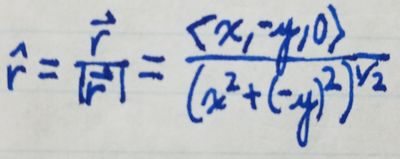 r̂ = r⃗/|r⃗| = <x,-y,0>/(x²+(-y)²)^½